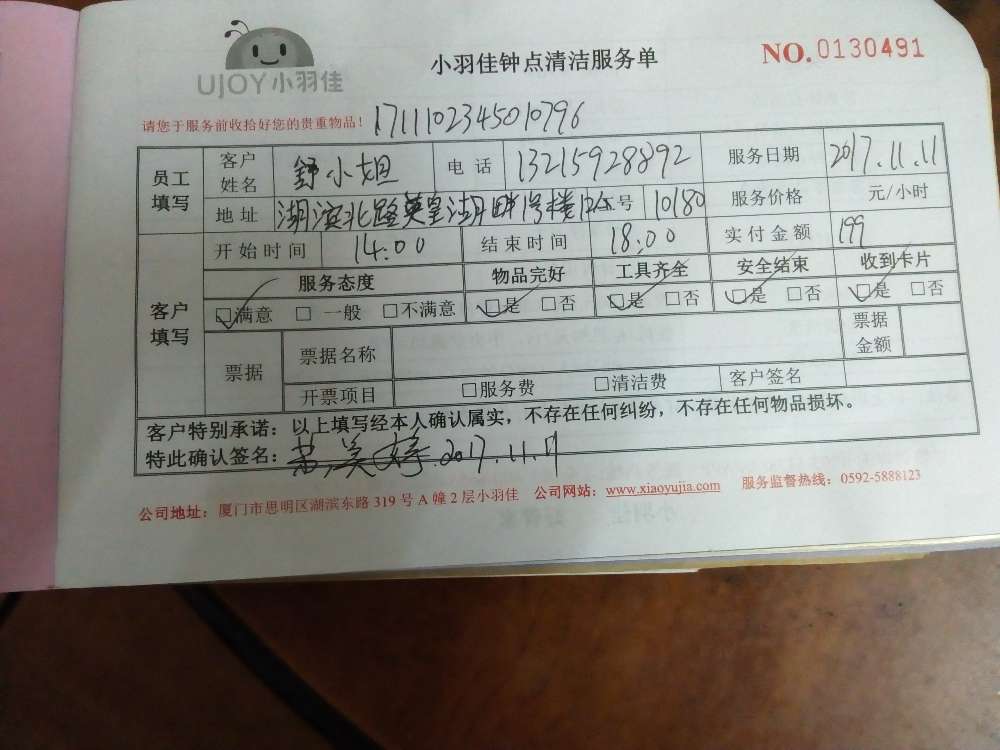 UJOY小羽佳
小羽佳钟点清洁服务单
NO.0130491
请您于服务前收拾好您的贵重物品！
1711102345010796
员工填写 客户姓名 舒小姐 电话 13215928892 服务日期 2017.11.11
地址 湖滨北路英皇湖畔1号楼 号 10180 服务价格 元/小时
开始时间 14:00 结束时间 18:00 实付金额 199
客户填写 服务态度 物品完好 工具齐全 安全结束 收到卡片
☑满意 □一般 □不满意 ☑是 □否 ☑是 □否 ☑是 □否 ☑是 □否
票据 票据名称 票据金额
开票项目 □服务费 □清洁费 客户签名
客户特别承诺：以上填写经本人确认属实，不存在任何纠纷，不存在任何物品损坏。
特此确认签名： 2017.11.11
公司地址：厦门市思明区湖滨东路 319 号 A 幢 2 层小羽佳 公司网站：www.xiaoyujia.com 服务监督热线：0592-5888123